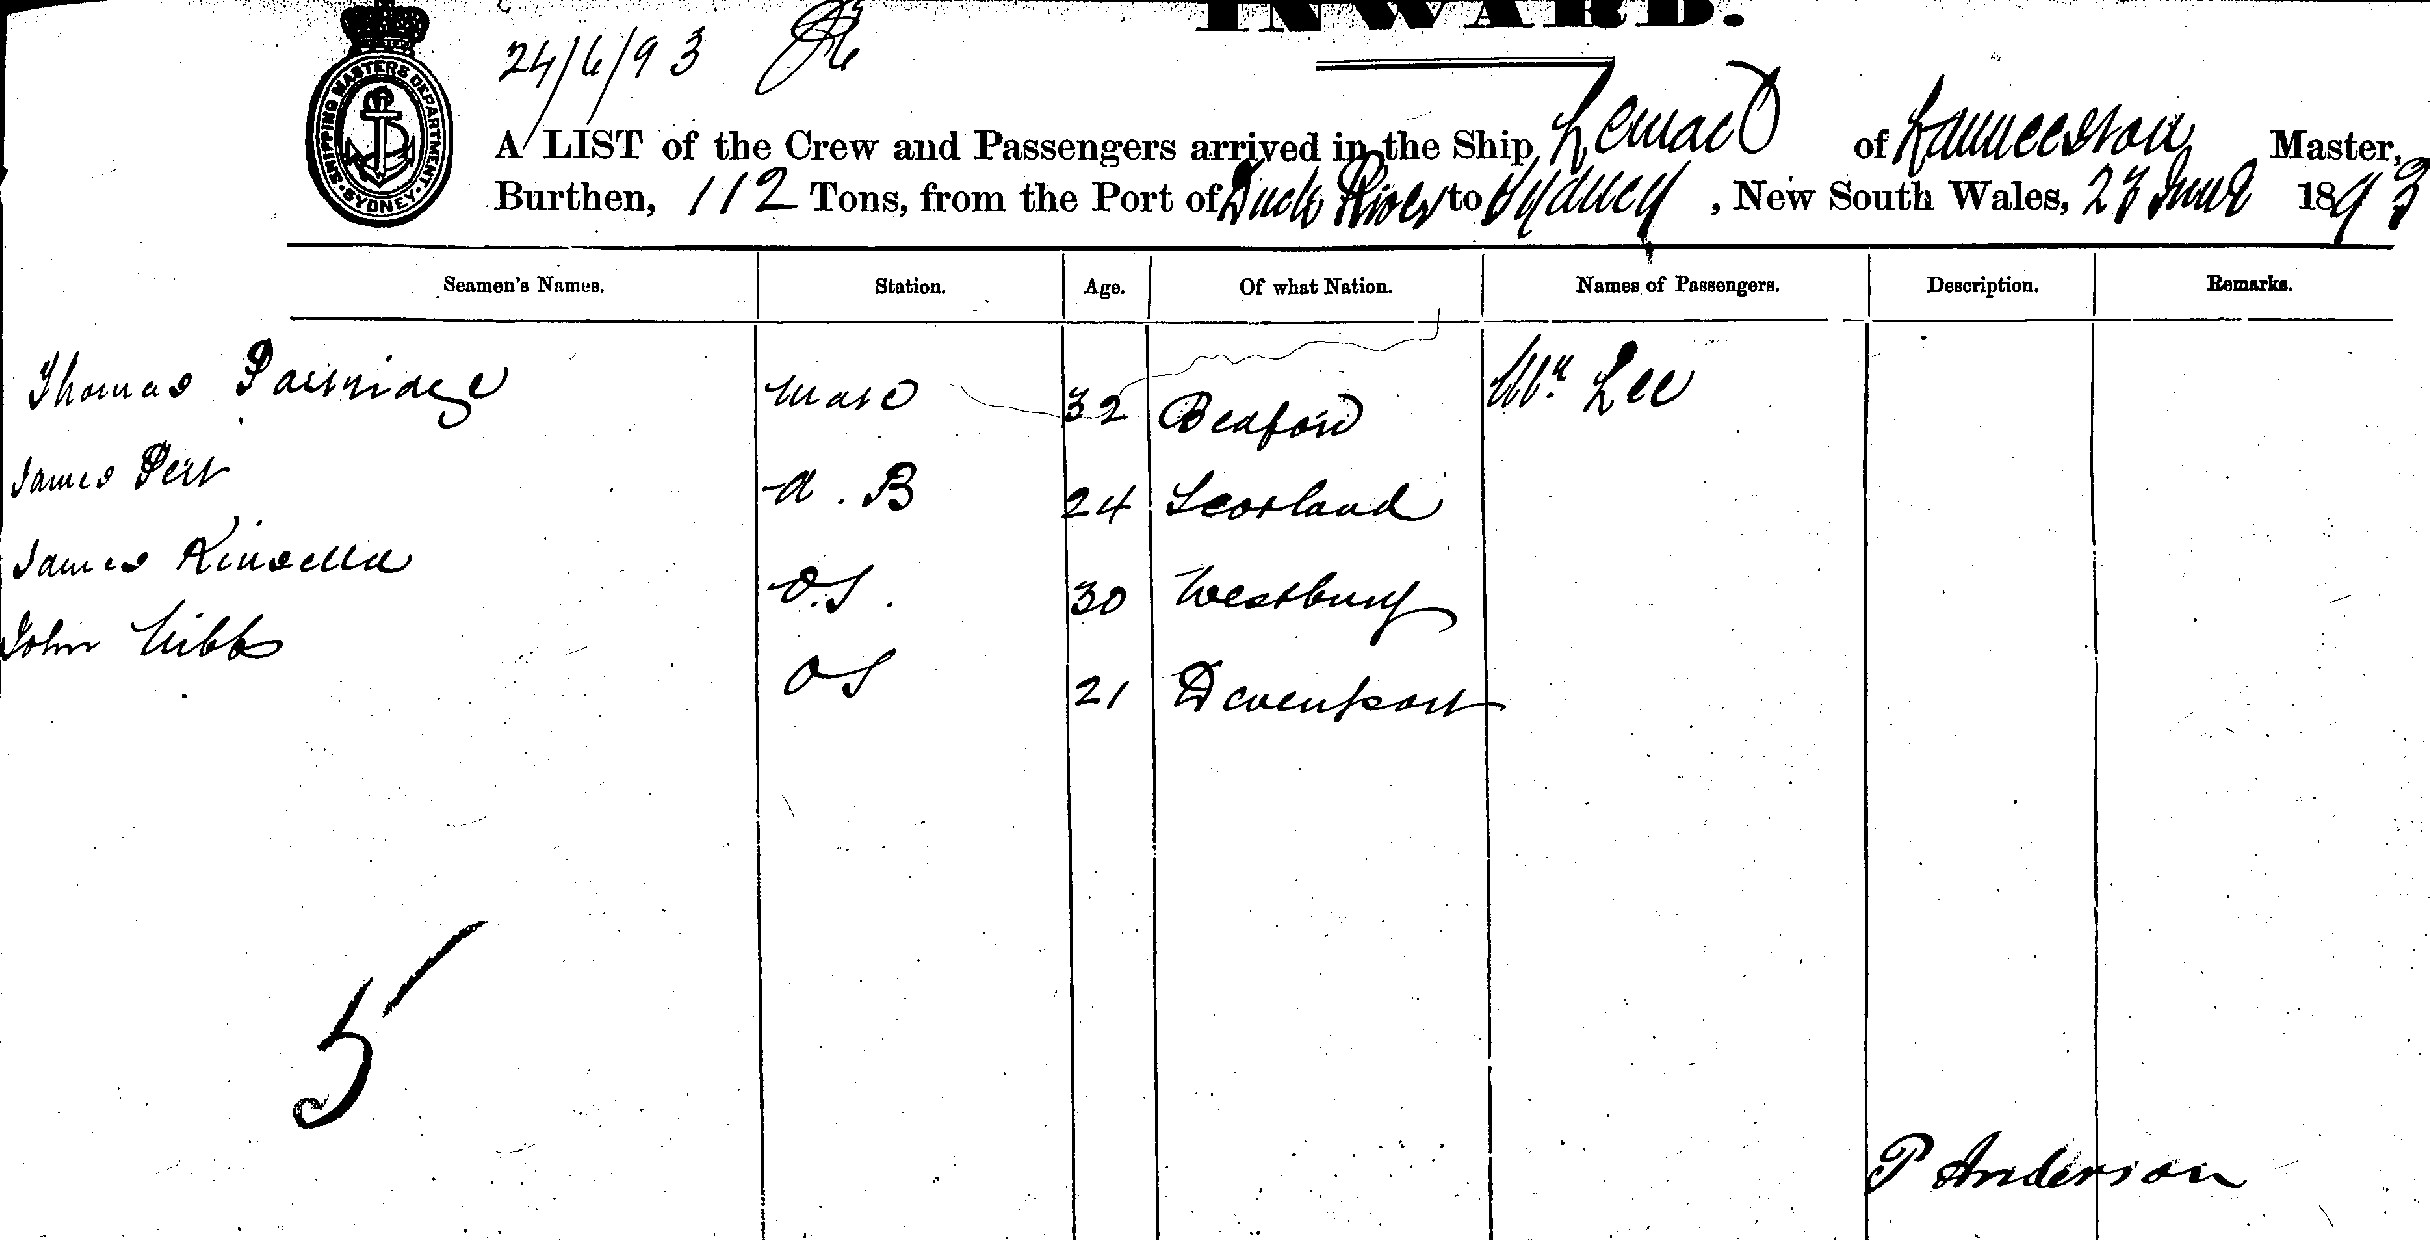 INWARD.
24/6/93
SHIPPING MASTERS DEPARTMENT SYDNEY
A LIST of the Crew and Passengers arrived in the Ship of Launceston Master,
Burthen, 112 Tons, from the Port of Duck River to Sydney, New South Wales, 23 June 1893
Seamen's Names. Station. Age. Of what Nation. Names of Passengers. Description. Remarks.
Thomas Partridge Mate 32 Bedford Mr. Lee
James Pert A. B 24 Scotland
James Kinsella O.S. 30 Westbury
John Gibbs OS 21 Devenport
5
P Anderson